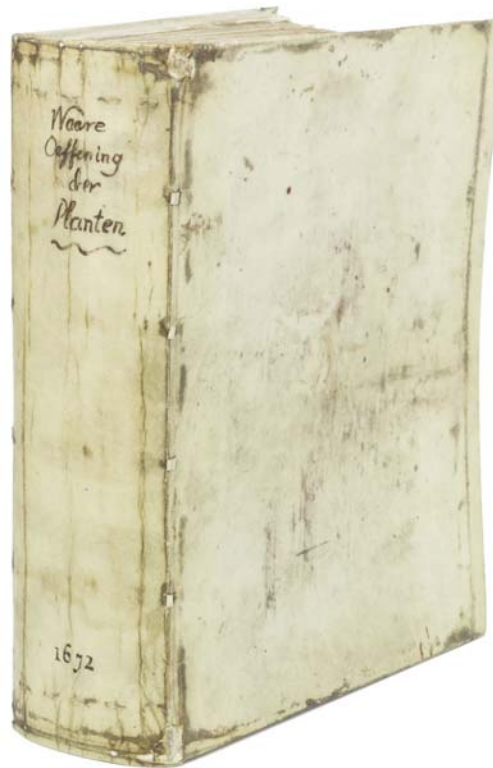 Waare
Oeffening
der
Planten
1672